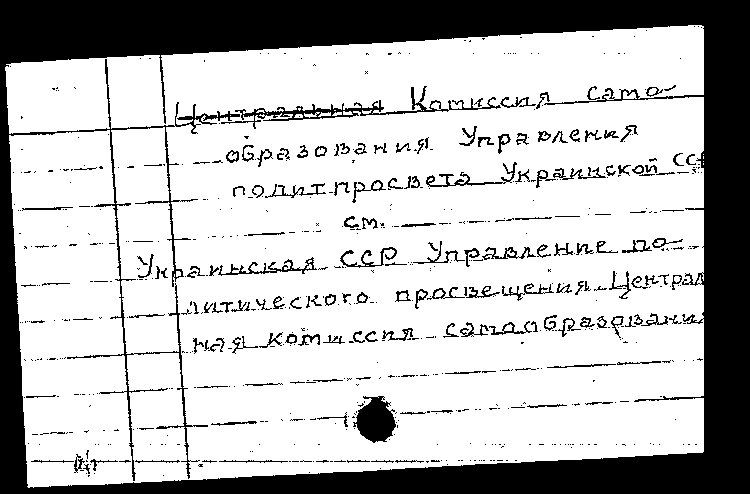 Центральная Комиссия само-
образования Управления
политпросвета Украинской ССР
см.
Украинская ССР Управление по-
литического просвещения. Централ
ная комиссия самообразования